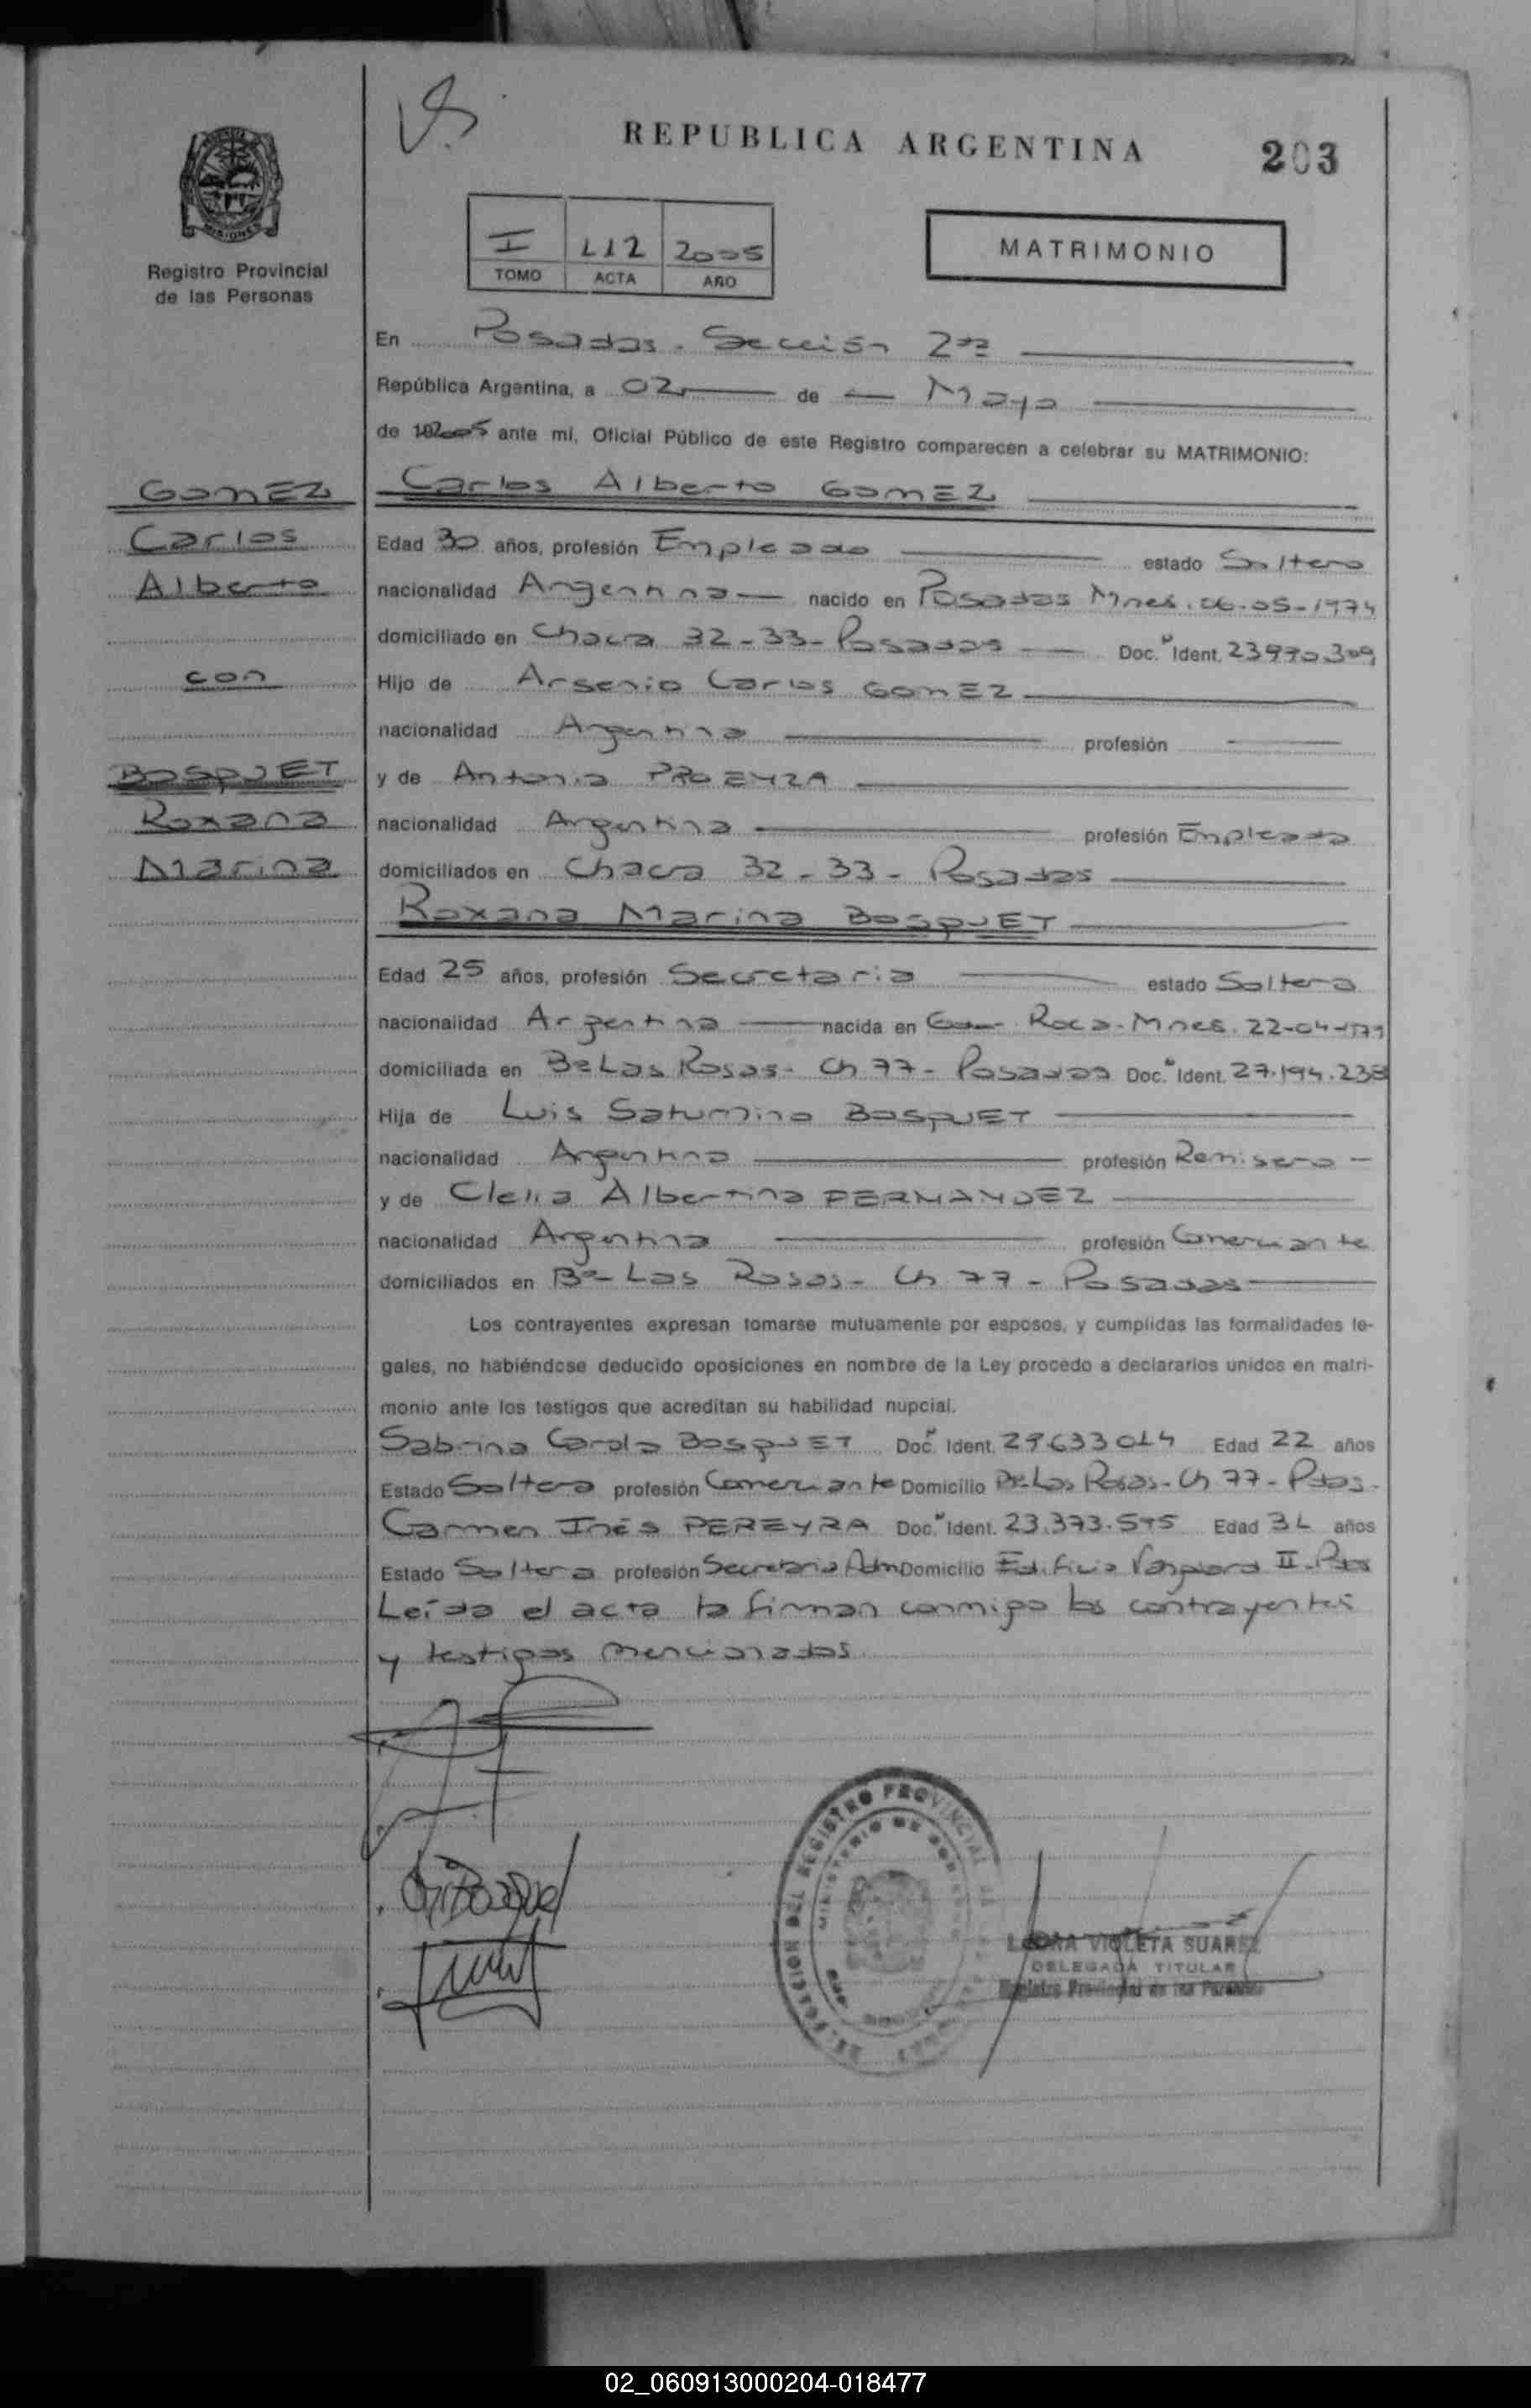 REPUBLICA ARGENTINA
203
Registro Provincial
de las Personas
I 112 2005
TOMO ACTA AÑO
MATRIMONIO
En Posadas - Sección 2da
República Argentina, a 02 de Mayo
de 2005 ante mí, Oficial Público de este Registro comparecen a celebrar su MATRIMONIO:
GOMEZ
Carlos
Alberto
con
BOSQUET
Roxana
Marina
Carlos Alberto GOMEZ
Edad 30 años, profesión Empleado estado Soltero
nacionalidad Argentina nacido en Posadas Mnes. 06-05-1974
domiciliado en Chacra 32-33-Posadas Doc. Ident. 23970309
Hijo de Arsenio Carlos GOMEZ
nacionalidad Argentina profesión
y de Antonia PROEYZA
nacionalidad Argentina profesión Empleada
domiciliados en Chacra 32-33- Posadas
Roxana Marina BOSQUET
Edad 25 años, profesión Secretaria estado Soltera
nacionalidad Argentina nacida en Gdor. Roca-Mnes. 22-04-1979
domiciliada en Bº Las Rosas- Ch 77- Posadas Doc. Ident. 27.194.238
Hija de Luis Saturnino BOSQUET
nacionalidad Argentina profesión Remisero
y de Clelia Albertina FERNANDEZ
nacionalidad Argentina profesión Comerciante
domiciliados en Bº Las Rosas- Ch 77- Posadas
Los contrayentes expresan tomarse mutuamente por esposos, y cumplidas las formalidades le-
gales, no habiéndose deducido oposiciones en nombre de la Ley procedo a declararlos unidos en matri-
monio ante los testigos que acreditan su habilidad nupcial.
Sabrina Carola BOSQUET Doc. Ident. 29633014 Edad 22 años
Estado Soltera profesión Comerciante Domicilio Bº Las Rosas- Ch 77- Pdas-
Carmen Inés PEREYRA Doc. Ident. 23.373.595 Edad 31 años
Estado Soltera profesión Secretaria Adm Domicilio Edificio II-Pdas
Leída el acta la firman conmigo los contrayentes
y testigos mencionados.
DELEGACION DEL REGISTRO PROVINCIAL
MINISTERIO DE
VIOLETA SUAREZ
DELEGADA TITULAR
Registro Provincial de las Personas
02_060913000204-018477